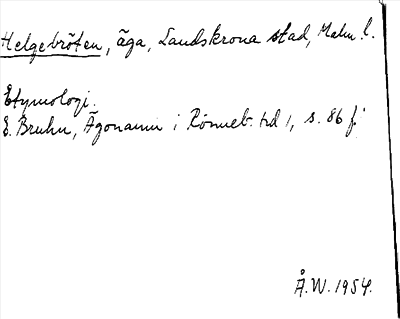 Helgebröten, äga, Landskrona stad, Malm. l.
Etymologi.
E. Bruhn, Ägonamn i Rönneb. hd 1, s. 86 f.
Å.W. 1954.